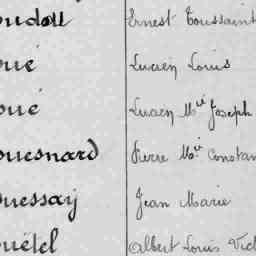 oudou Ernest Toussaint
oué Lucien Louis
oué Lucien Mie Joseph
ouesnard Pierre Mie Constan
ouessay Jean Marie
ouétel Albert Louis Vict